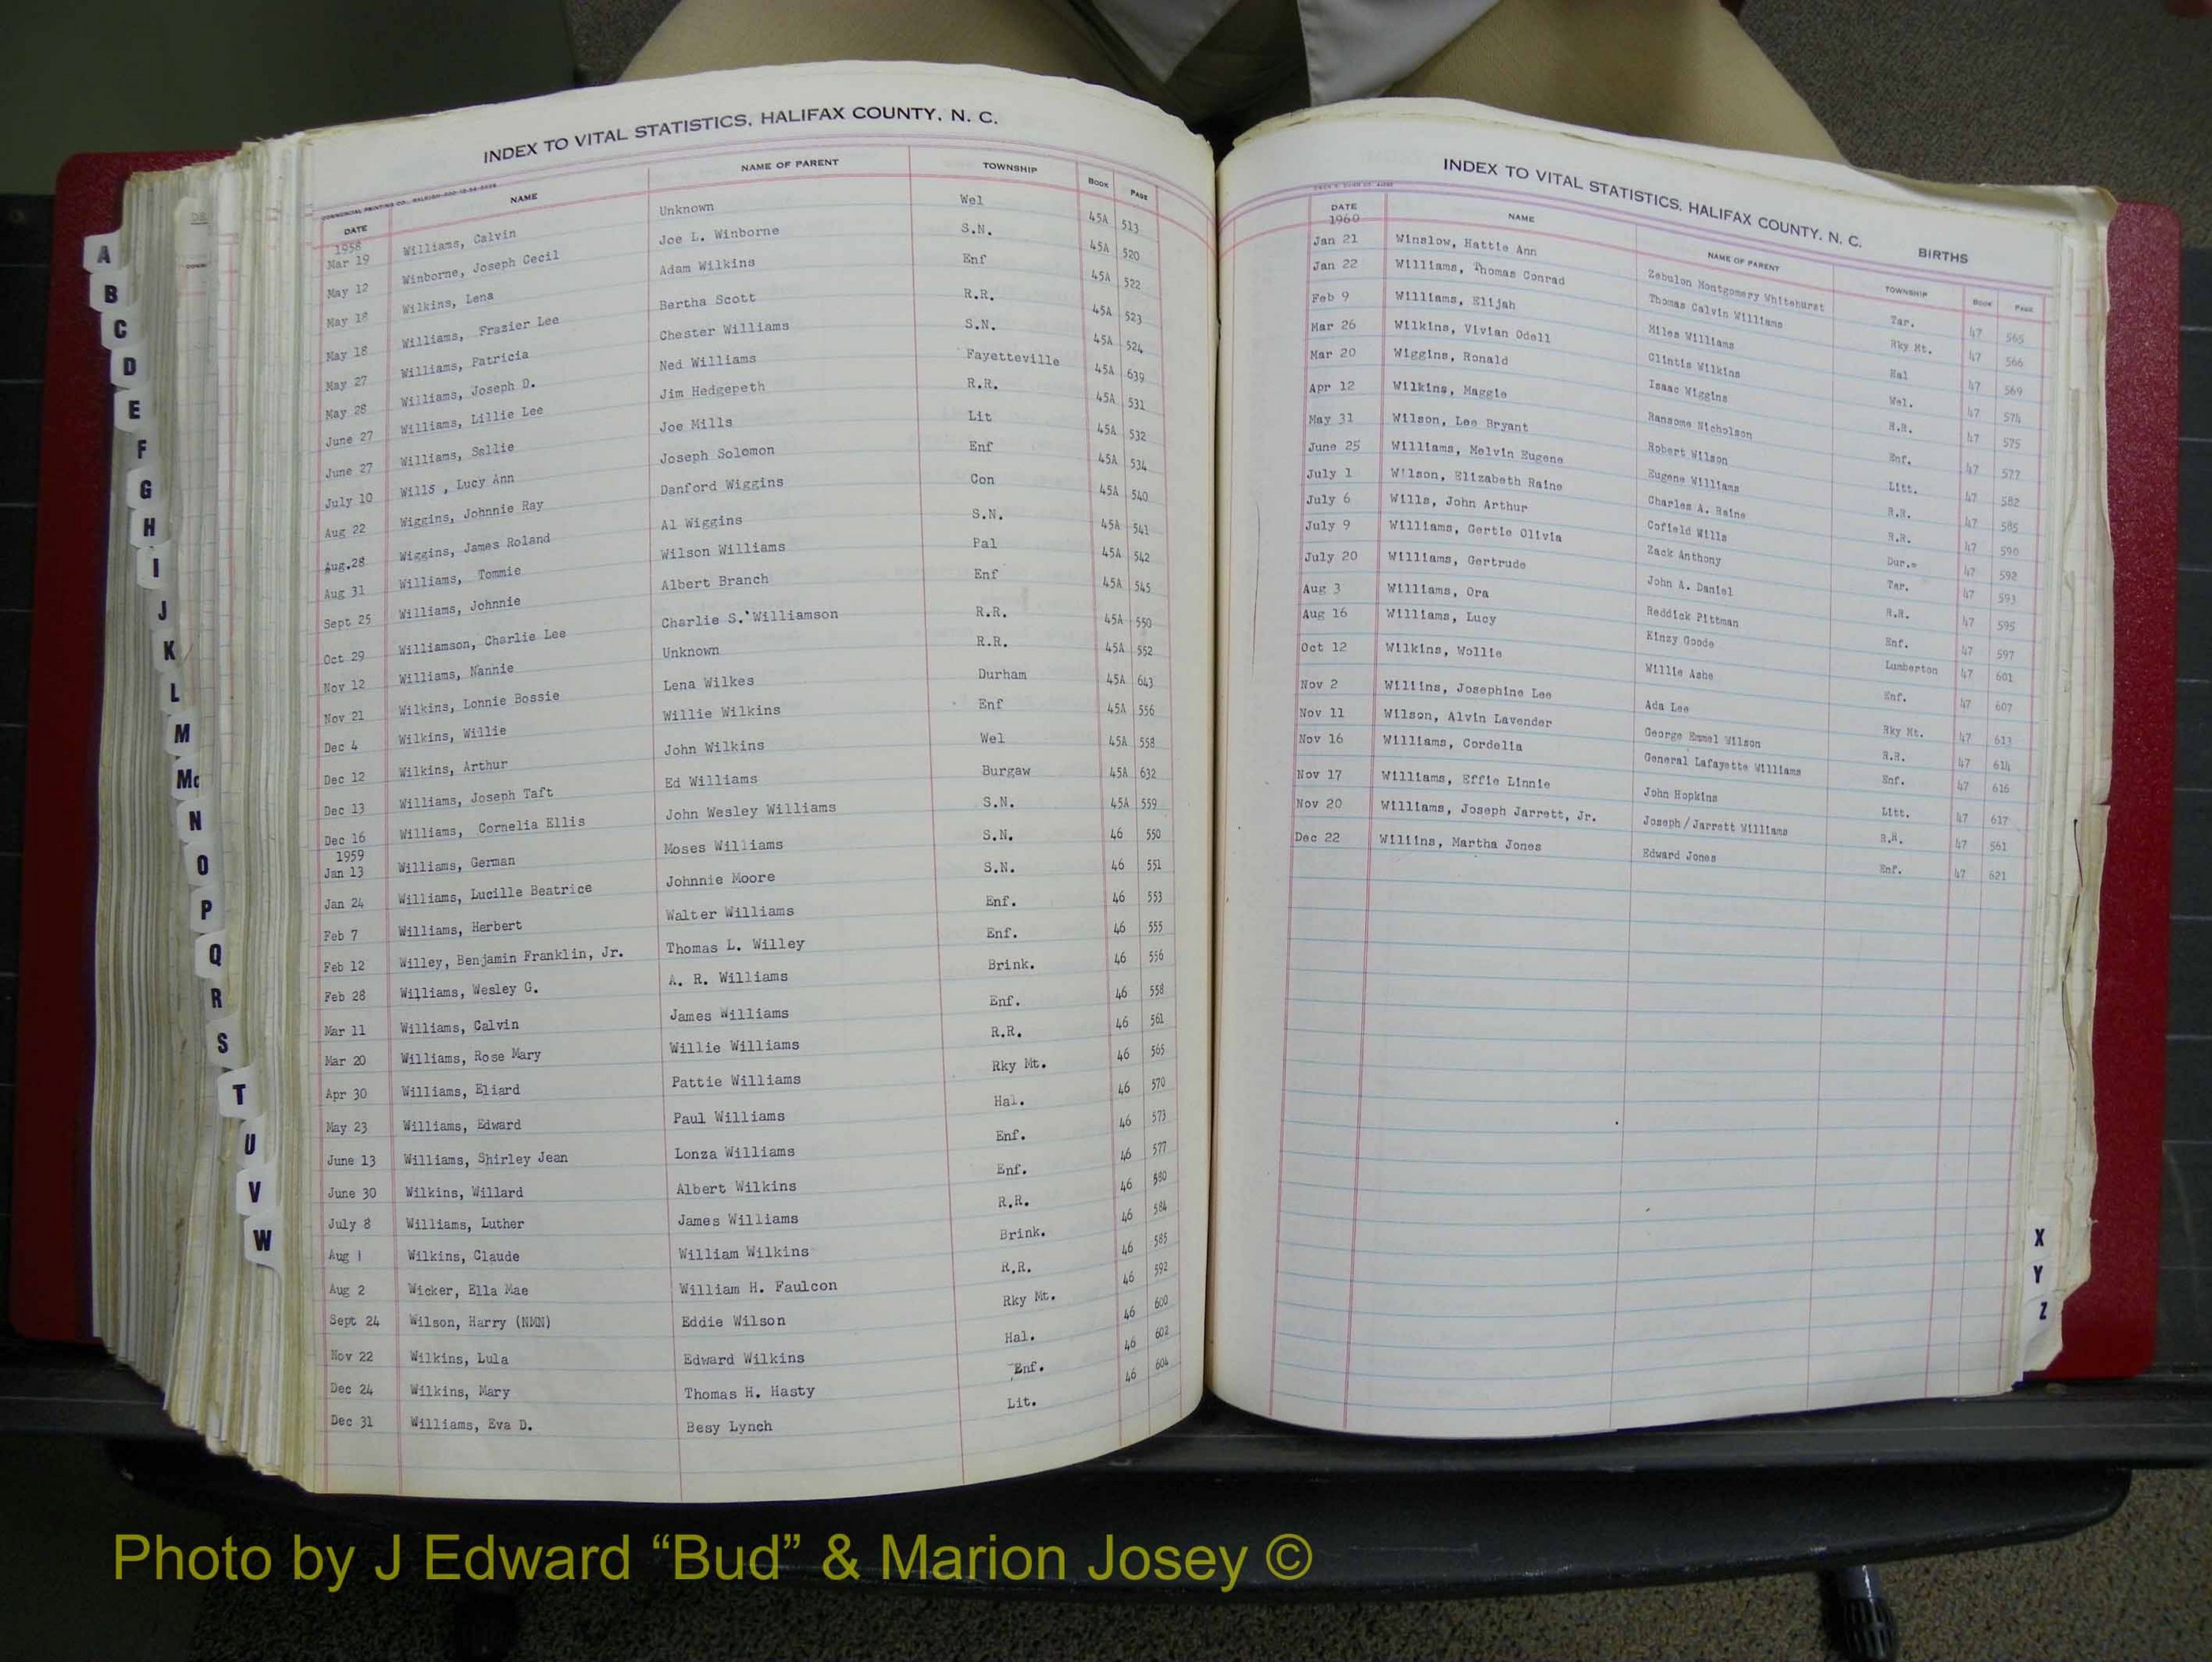 INDEX TO VITAL STATISTICS, HALIFAX COUNTY, N. C.
DATE NAME NAME OF PARENT TOWNSHIP BOOK PAGE
1958
Mar 19 Williams, Calvin Unknown Wel 45A 513
May 12 Winborne, Joseph Cecil Joe L. Winborne S.N. 45A 520
May 18 Wilkins, Lena Adam Wilkins Enf 45A 522
May 18 Williams, Frazier Lee Bertha Scott R.R. 45A 523
May 27 Williams, Patricia Chester Williams S.N. 45A 524
May 28 Williams, Joseph D. Ned Williams Fayetteville 45A 639
June 27 Williams, Lillie Lee Jim Hedgepeth R.R. 45A 531
June 27 Williams, Sallie Joe Mills Lit 45A 532
July 10 Wills , Lucy Ann Joseph Solomon Enf 45A 534
Aug 22 Wiggins, Johnnie Ray Danford Wiggins Con 45A 540
Aug.28 Wiggins, James Roland Al Wiggins S.N. 45A 541
Aug 31 Williams, Tommie Wilson Williams Pal 45A 542
Sept 25 Williams, Johnnie Albert Branch Enf 45A 545
Oct 29 Williamson, Charlie Lee Charlie S. Williamson R.R. 45A 550
Nov 12 Williams, Nannie Unknown R.R. 45A 552
Nov 21 Wilkins, Lonnie Bossie Lena Wilkes Durham 45A 643
Dec 4 Wilkins, Willie Willie Wilkins Enf 45A 556
Dec 12 Wilkins, Arthur John Wilkins Wel 45A 558
Dec 13 Williams, Joseph Taft Ed Williams Burgaw 45A 632
Dec 16 Williams, Cornelia Ellis John Wesley Williams S.N. 45A 559
1959
Jan 13 Williams, German Moses Williams S.N. 46 550
Jan 24 Williams, Lucille Beatrice Johnnie Moore S.N. 46 551
Feb 7 Williams, Herbert Walter Williams Enf. 46 553
Feb 12 Willey, Benjamin Franklin, Jr. Thomas L. Willey Enf. 46 555
Feb 28 Williams, Wesley G. A. R. Williams Brink. 46 556
Mar 11 Williams, Calvin James Williams Enf. 46 558
Mar 20 Williams, Rose Mary Willie Williams R.R. 46 561
Apr 30 Williams, Eliard Pattie Williams Rky Mt. 46 565
May 23 Williams, Edward Paul Williams Hal. 46 570
June 13 Williams, Shirley Jean Lonza Williams Enf. 46 573
June 30 Wilkins, Willard Albert Wilkins Enf. 46 577
July 8 Williams, Luther James Williams R.R. 46 580
Aug 1 Wilkins, Claude William Wilkins Brink. 46 584
Aug 2 Wicker, Ella Mae William H. Faulcon R.R. 46 585
Sept 24 Wilson, Harry (NMN) Eddie Wilson Rky Mt. 46 592
Nov 22 Wilkins, Lula Edward Wilkins Hal. 46 600
Dec 24 Wilkins, Mary Thomas H. Hasty Enf. 46 602
Dec 31 Williams, Eva D. Besy Lynch Lit. 46 604
INDEX TO VITAL STATISTICS, HALIFAX COUNTY, N. C. BIRTHS
DATE NAME NAME OF PARENT TOWNSHIP BOOK PAGE
1960
Jan 21 Winslow, Hattie Ann Zebulon Montgomery Whitehurst Tar. 47 565
Jan 22 Williams, Thomas Conrad Thomas Calvin Williams Rky Mt. 47 566
Feb 9 Williams, Elijah Miles Williams Hal 47 569
Mar 26 Wilkins, Vivian Odell Clintis Wilkins Wel. 47 574
Mar 20 Wiggins, Ronald Isaac Wiggins R.R. 47 575
Apr 12 Wilkins, Maggie Ransome Nicholson Enf. 47 577
May 31 Wilson, Lee Bryant Robert Wilson Litt. 47 582
June 25 Williams, Melvin Eugene Eugene Williams R.R. 47 585
July 1 Wilson, Elizabeth Raine Charles A. Raine R.R. 47 590
July 6 Wills, John Arthur Cofield Wills Dur. 47 592
July 9 Williams, Gertie Olivia Zack Anthony Tar. 47 593
July 20 Williams, Gertrude John A. Daniel R.R. 47 595
Aug 3 Williams, Ora Reddick Pittman Enf. 47 597
Aug 16 Williams, Lucy Kinzy Goode Lumberton 47 601
Oct 12 Wilkins, Wollie Willie Ashe Enf. 47 607
Nov 2 Wiliins, Josephine Lee Ada Lee Rky Mt. 47 613
Nov 11 Wilson, Alvin Lavender George Emmel Wilson R.R. 47 614
Nov 16 Williams, Cordelia General Lafayette Williams Enf. 47 616
Nov 17 Williams, Effie Linnie John Hopkins Litt. 47 617
Nov 20 Williams, Joseph Jarrett, Jr. Joseph/Jarrett Williams R.R. 47 561
Dec 22 Wiliins, Martha Jones Edward Jones Enf. 47 621
A
B
C
D
E
F
G
H
I
J
K
L
M
Mc
N
O
P
Q
R
S
T
U
V
W
X
Y
Z
Photo by J Edward “Bud” & Marion Josey ©